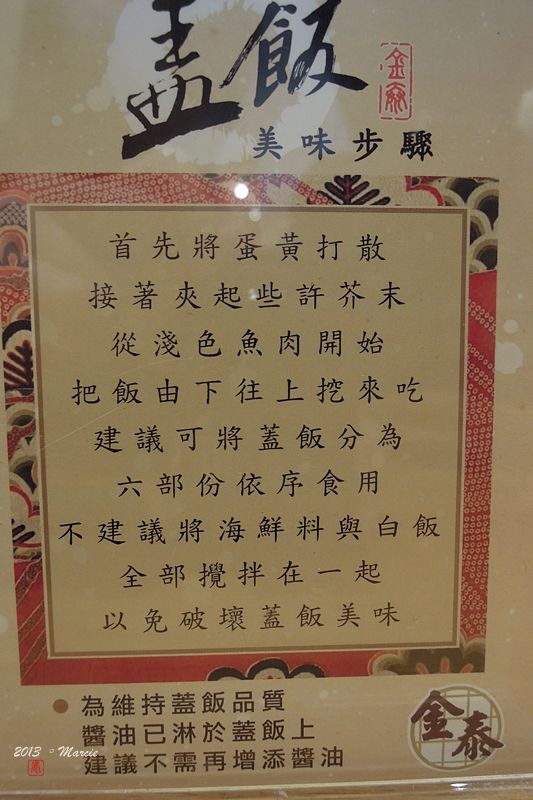 蓋飯
金泰
美味步驟
首先將蛋黃打散
接著夾起些許芥末
從淺色魚肉開始
把飯由下往上挖來吃
建議可將蓋飯分為
六部份依序食用
不建議將海鮮料與白飯
全部攪拌在一起
以免破壞蓋飯美味
●為維持蓋飯品質
醬油已淋於蓋飯上
建議不需再增添醬油
金泰
2013。Marcie